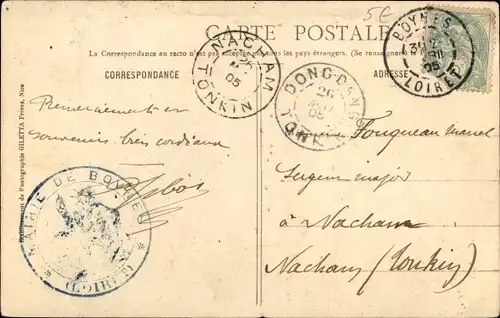 5€
CARTE POSTALE
La Correspondance au recto n'est pas acceptée par tous les pays étrangers. (Se renseigner
CORRESPONDANCE
ADRESSE
NACHAM
25
05
TONKIN
DONG-DANG
26
05
TONKIN
BOYNES
05
LOIRET
Remerciements et
souvenirs très cordiaux
Monsieur Fouqueau Marcel
Sergent major
à Nacham
Nacham (Tonkin)
MAIRIE DE BO
(LOIRET)
de Photographie GILETTA Frères, Nice